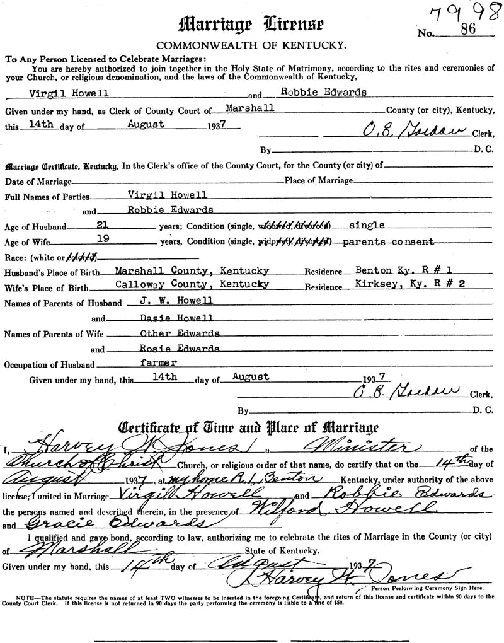 7998
Marriage License
No. 86
COMMONWEALTH OF KENTUCKY.
To Any Person Licensed to Celebrate Marriages:
You are hereby authorized to join together in the Holy State of Matrimony, according to the rites and ceremonies of
your Church, or religious denomination, and the laws of the Commonwealth of Kentucky,
Virgil Howell and Robbie Edwards
Given under my hand, as Clerk of County Court of Marshall County (or city), Kentucky,
this 14th day of August 1937
Clerk,
By D. C.
Marriage Certificate, Kentucky, In the Clerk's office of the County Court, for the County (or city) of
Date of Marriage Place of Marriage
Full Names of Parties Virgil Howell
and Robbie Edwards
Age of Husband 21 years; Condition (single, single
Age of Wife 19 years, Condition (single, parents consent
Race: (white or
Husband's Place of Birth Marshall County, Kentucky Residence Benton Ky. R # 1
Wife's Place of Birth Calloway County, Kentucky Residence Kirksey, Ky. R # 2
Names of Parents of Husband J. W. Howell
and Dasie Howell
Names of Parents of Wife Other Edwards
and Rosie Edwards
Occupation of Husband farmer
Given under my hand, this 14th day of August 1937
Clerk,
By D. C.
Certificate of Time and Place of Marriage
I, Harvey W Jones, Minister of the
Church of Christ Church, or religious order of that name, do certify that on the 14th day of
August 1937, at my home R. 1, Benton Kentucky, under authority of the above
license, I united in Marriage Virgil Howell and Robbie Edwards
the persons named and described therein, in the presence of Wilford Howell
and Gracie Edwards
I qualified and gave bond, according to law, authorizing me to celebrate the rites of Marriage in the County (or city)
of Marshall State of Kentucky.
Given under my hand, this 14th day of August 1937
Harvey W. Jones
Person Performing Ceremony Sign Here.
NOTE—The statute requires the names of at least TWO witnesses to be inserted in the foregoing Certificate, and return of this license and certificate within 90 days to the
County Court Clerk. If this license is not returned in 90 days the party performing the ceremony is liable to a fine of